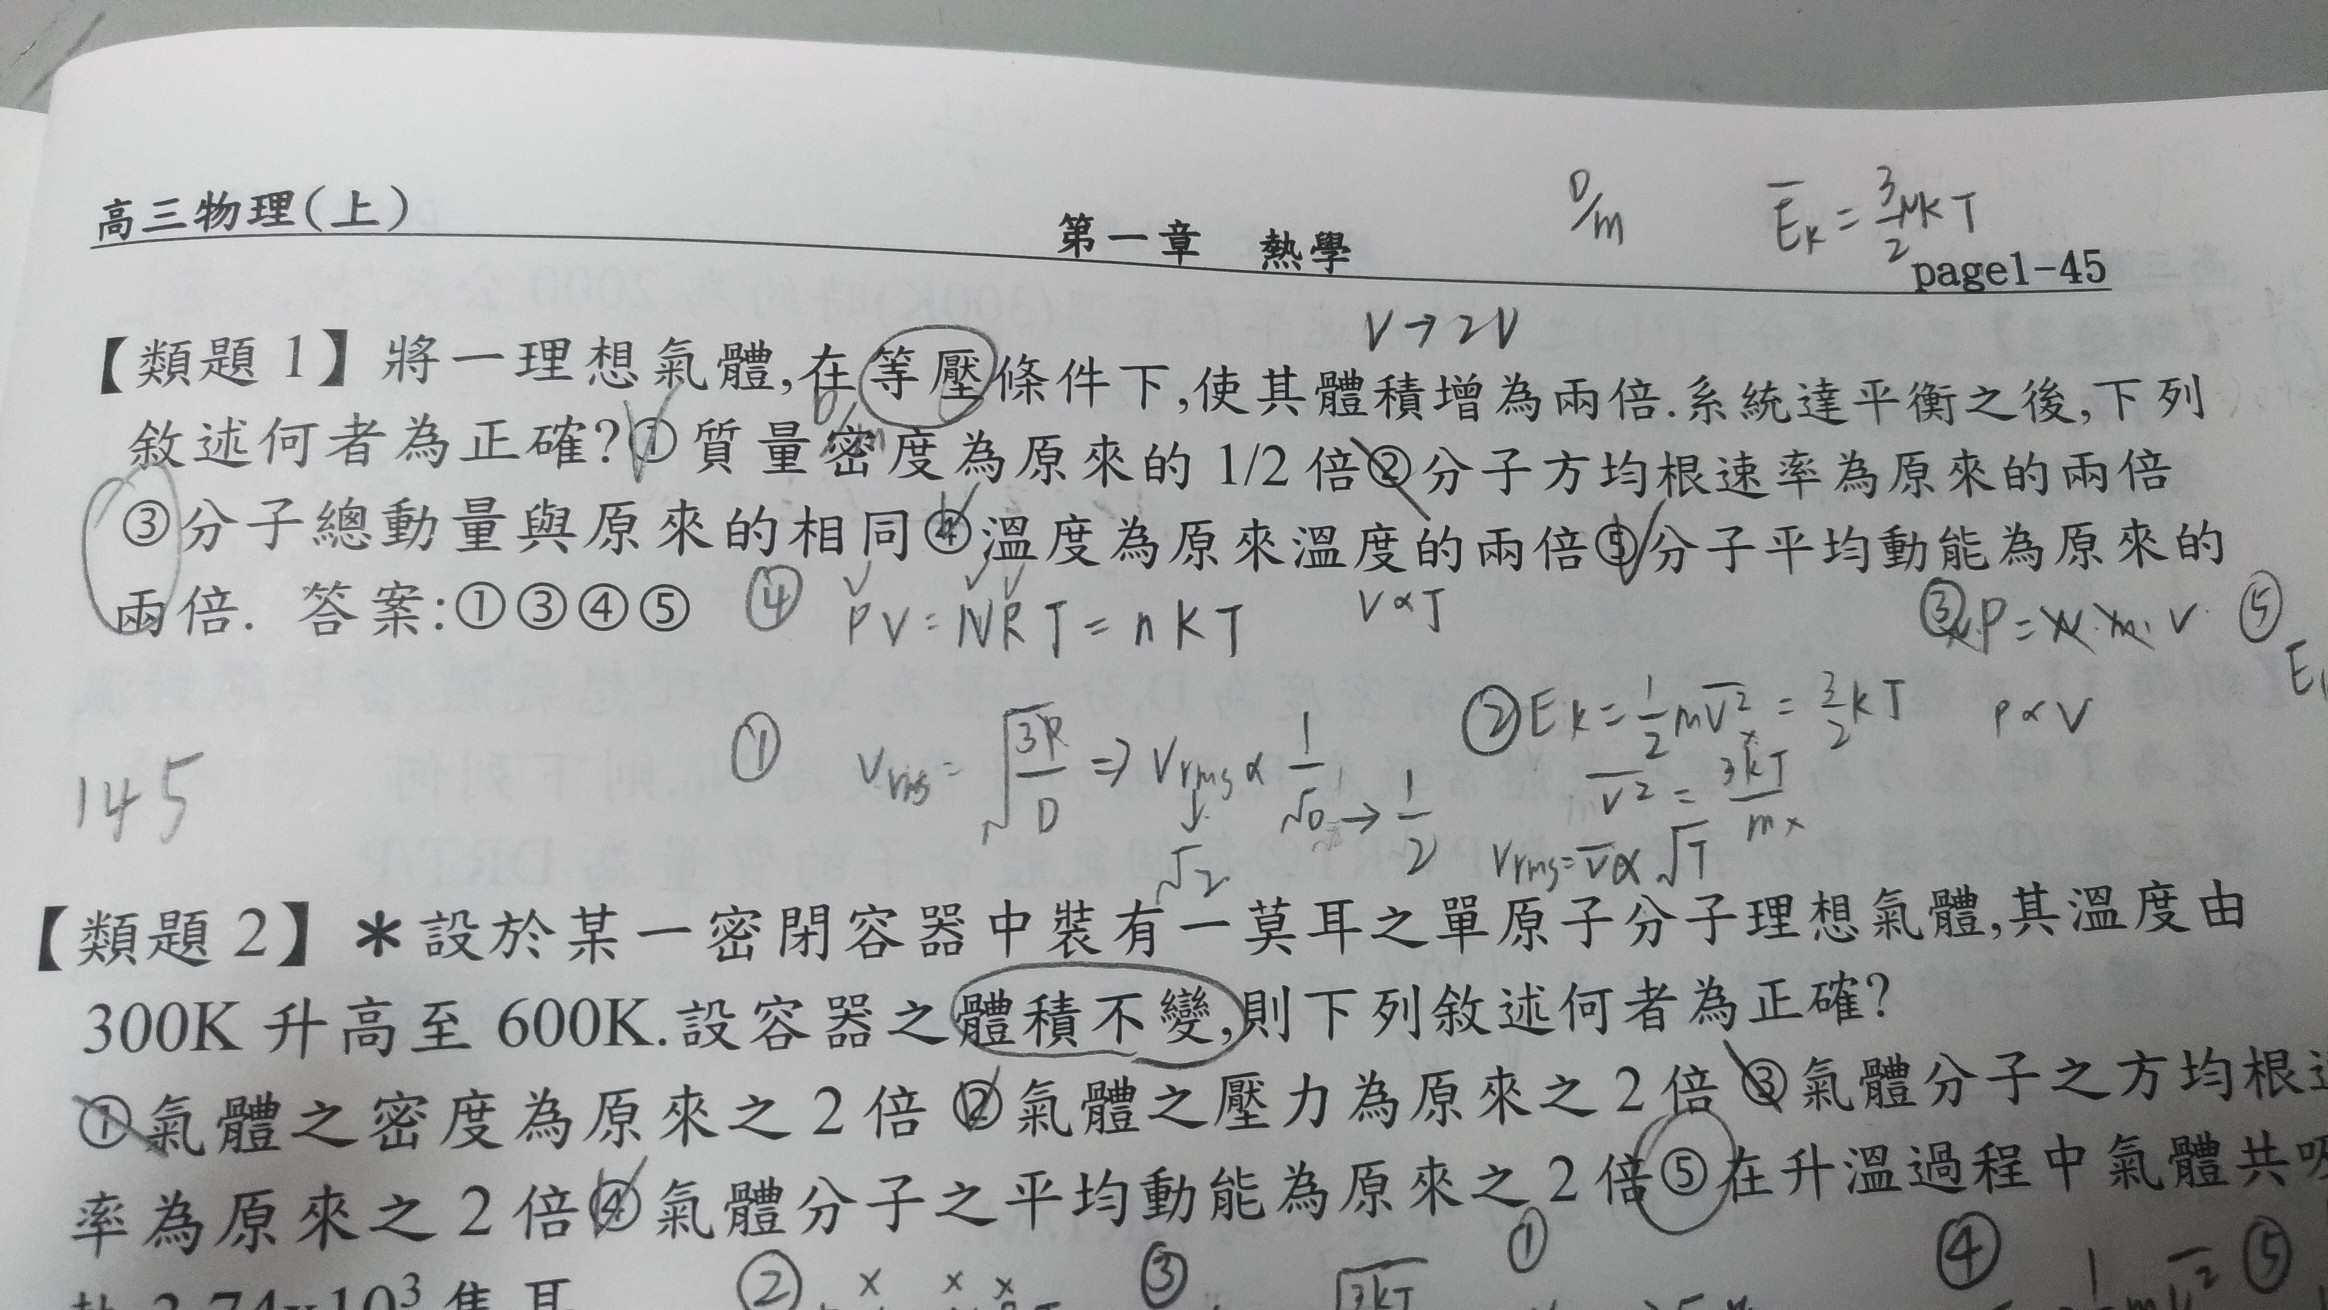 高三物理(上)
第一章 熱學
D/m
E̅k = 3/2 NKT
page1-45
V→2V
【類題1】將一理想氣體,在等壓條件下,使其體積增為兩倍.系統達平衡之後,下列
敘述何者為正確?①質量密度為原來的 1/2 倍②分子方均根速率為原來的兩倍
③分子總動量與原來的相同④溫度為原來溫度的兩倍⑤分子平均動能為原來的
兩倍. 答案:①③④⑤
④ PV = NRT = nKT
V∝T
③ P = N·m·V
⑤
① Vrms = √(3P/D) ⇒ Vrms ∝ 1/√D → 1/2
√2
② Ek = 1/2 mv̅² = 3/2 kT
P∝V
v̅² = 3kT/m
Vrms = v̅ ∝ √T
145
【類題2】＊設於某一密閉容器中裝有一莫耳之單原子分子理想氣體,其溫度由
300K 升高至 600K.設容器之體積不變,則下列敘述何者為正確?
①氣體之密度為原來之 2 倍 ②氣體之壓力為原來之 2 倍 ③氣體分子之方均根
率為原來之 2 倍④氣體分子之平均動能為原來之 2 倍⑤在升溫過程中氣體共
② ③ ① ④ ⑤